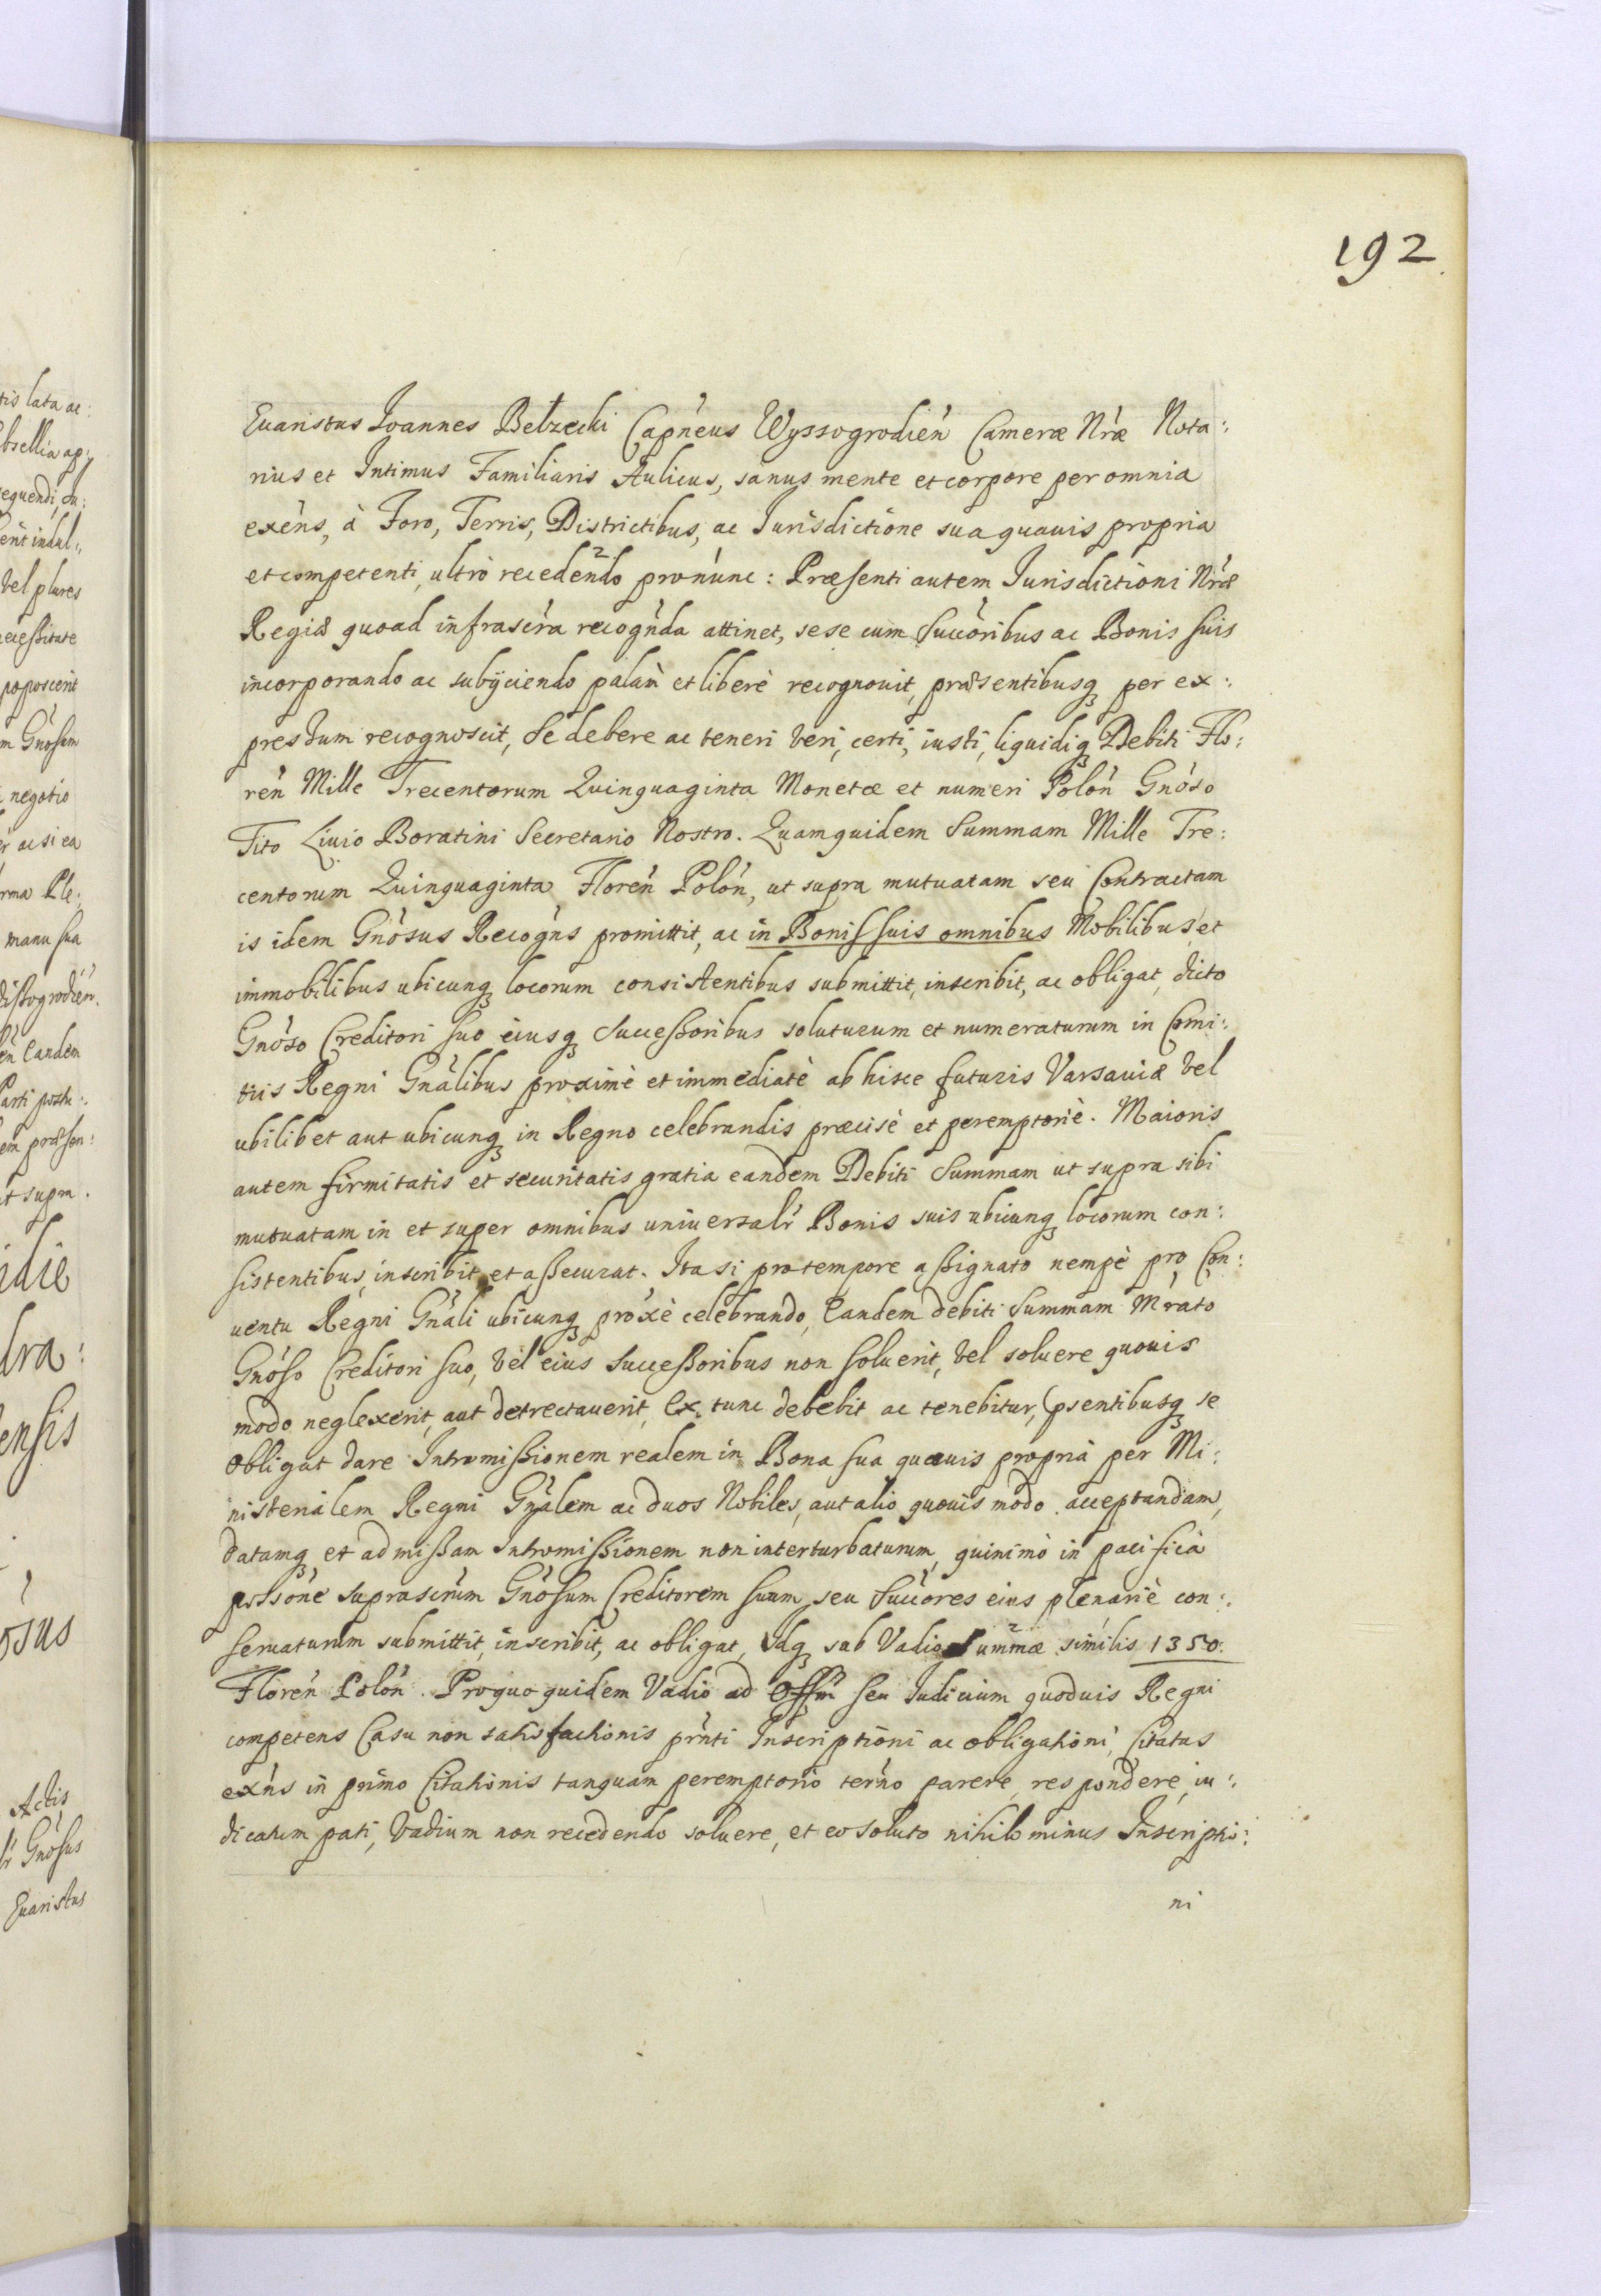 192
Euaristus Joannes Bełzecki Capneus Wyssogrodien̄ Cameræ Nræ Nota:
rius et Intimus Familiaris Aulicus, sanus mente et corpore per omnia
exēns, à Foro, Terris, Districtibus, ac Jurisdictione sua quauis propria
et competenti, ultrò recedendo pronunc: Præsenti autem Jurisdictioni Nræ
Regiæ quoad infrascra recognda attinet, sese cum Succoribus ac Bonis suis
incorporando ac subijciendo palam et liberè recognouit, præsentibusq per ex:
pressum recognoscit, Se debere ac teneri veri, certi, iusti, liquidiq Debiti Flo:
ren̄ Mille Trecentorum Quinquaginta Monetæ et numeri Polon̄ Gnoso
Tito Liuio Boratini Secretario Nostro. Quamquidem Summam Mille Tre:
centorum Quinquaginta Floren̄ Polon̄, ut supra mutuatam seu Contractam
is idem Gnosus Recogns promittit, ac in Bonis suis omnibus Mobilibus et
immobilibus ubicunq locorum consistentibus submittit, inscribit, ac obligat, dicto
Gnoso Creditori suo eiusq Successoribus soluturum et numeraturum in Comi:
tiis Regni Gnalibus proximè et immediatè ab hisce futuris Varsauiæ vel
ubilibet aut ubicunq in Regno celebrandis præcisè et peremptoriè. Maioris
autem firmitatis et securitatis gratia eandem Debiti Summam ut supra sibi
mutuatam in et super omnibus uniuersalr Bonis suis ubicunq locorum con:
sistentibus, inscribit et assecurat. Ita si pro tempore assignato nempè pro Con:
uentu Regni Gnali ubicunq proxè celebrando, Eandem debiti Summam Mrato
Gnoso Creditori suo, vel eius Successoribus non soluerit, vel soluere quouis
modo neglexerit, aut detrectauerit, Ex tunc debebit ac tenebitur, psentibusq se
obligat dare Intromissionem realem in Bona sua quæuis propria per Mi:
nisterialem Regni Gnalem ac duos Nobiles, aut alio quouis modo acceptandam,
datamq et admissam Intromissionem non interturbaturum, quinimò in pacifica
possone suprascrum Gnosum Creditorem suum, seu Succores eius plenariè con:
seruaturum submittit, inscribit, ac obligat, Idq sub Vadio Summæ similis 1350.
Floren̄ Polon̄. Pro quo quidem Vadio ad Offm seu Iudicium quoduis Regni
competens Casu non satisfactionis prnti Inscriptioni ac obligationi, Citatus
exns in primo Citationis tanquam peremptorio termo parere, respondere, iu:
dicatum pati, Vadium non recedendo soluere, et eo soluto nihilominus Inscriptio:
ni